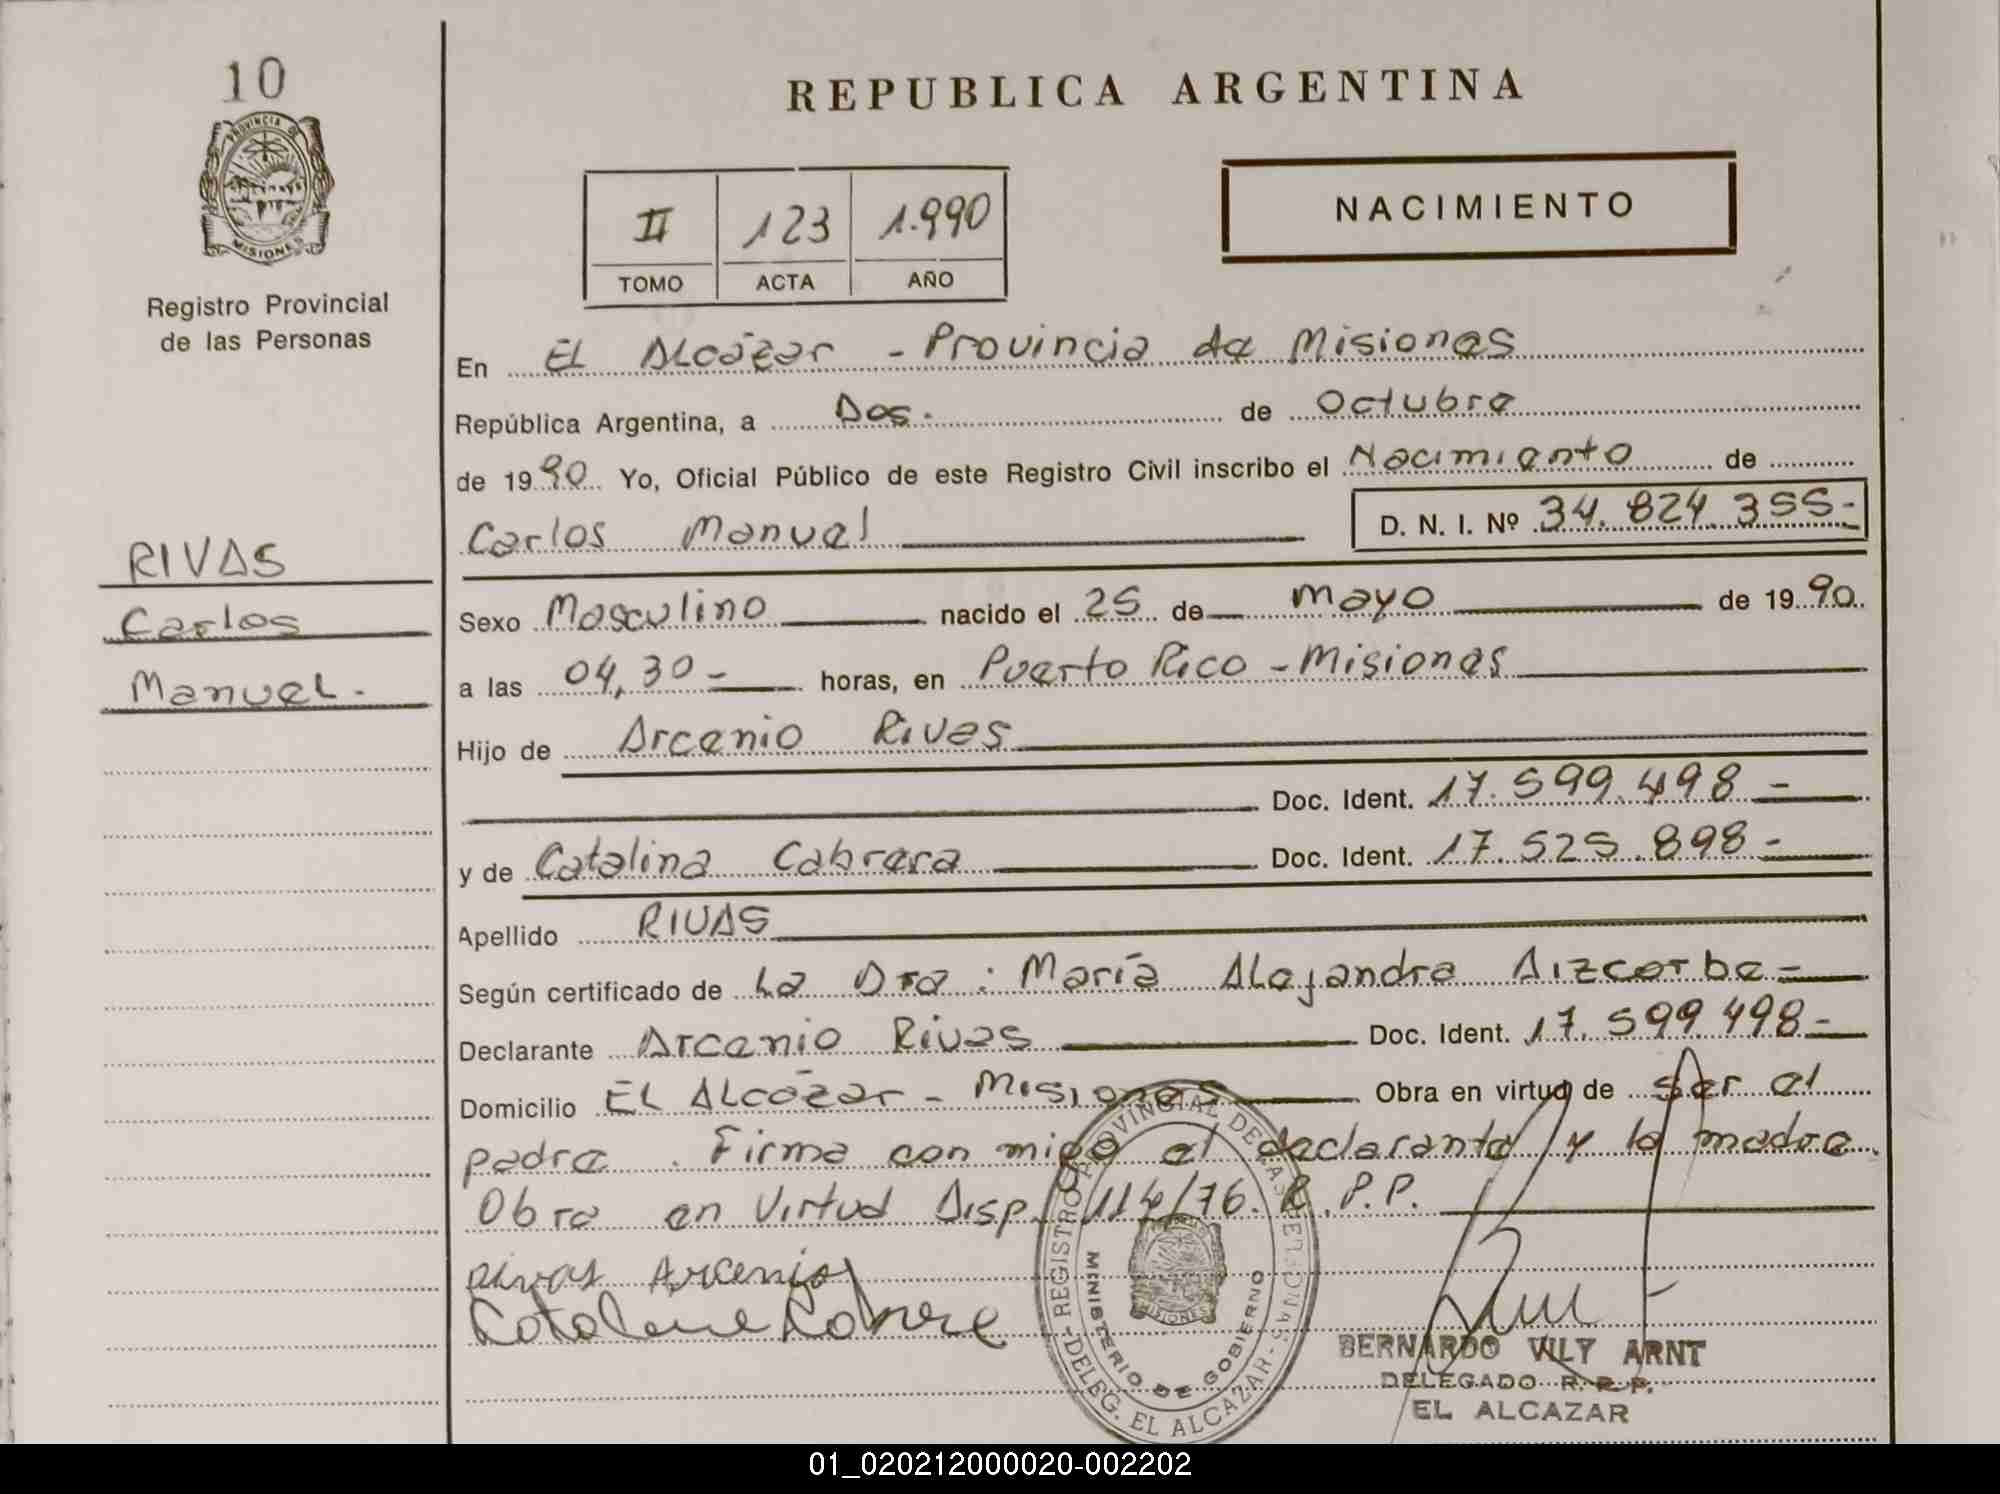 10
PROVINCIA DE
MISIONES
Registro Provincial
de las Personas
RIVAS
Carlos
Manuel.
REPUBLICA ARGENTINA
II 123 1.990
TOMO ACTA AÑO
NACIMIENTO
En EL ALcázar - Provincia de Misiones
República Argentina, a Dos. de Octubre
de 1990 Yo, Oficial Público de este Registro Civil inscribo el Nacimiento de
Carlos Manuel D. N. I. Nº 34.824.355-
Sexo Masculino nacido el 25 de mayo de 1990
a las 04,30- horas, en Puerto Rico - Misiones
Hijo de Arcenio Rivas
Doc. Ident. 17.599.498-
y de Catalina Cabrera Doc. Ident. 17.525.898-
Apellido RIVAS
Según certificado de La Dra: María Alejandra Aizcorbe-
Declarante Arcenio Rivas Doc. Ident. 17.599.498-
Domicilio EL ALcázar - Misiones Obra en virtud de ser el
padre. Firma con migo el declarante y la madre.
Obra en Virtud Disp. 114/76. R.P.P.
Rivas Arcenio
Catalina Cabrera
REGISTRO PROVINCIAL DE LAS PERSONAS
MINISTERIO DE GOBIERNO
MISIONES
DELEG. EL ALCAZAR
BERNARDO VILY ARNT
DELEGADO R.P.P.
EL ALCAZAR
01_020212000020-002202